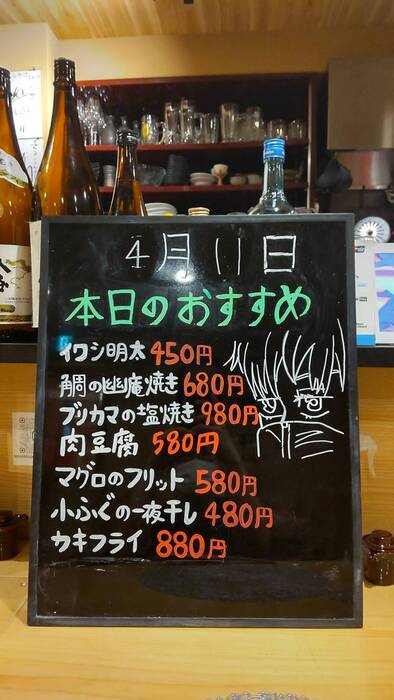 4月11日
本日のおすすめ
イワシ明太 450円
鯛の幽庵焼き 680円
ブリカマの塩焼き 980円
肉豆腐 580円
マグロのフリット 580円
小ふぐの一夜干し 480円
カキフライ 880円